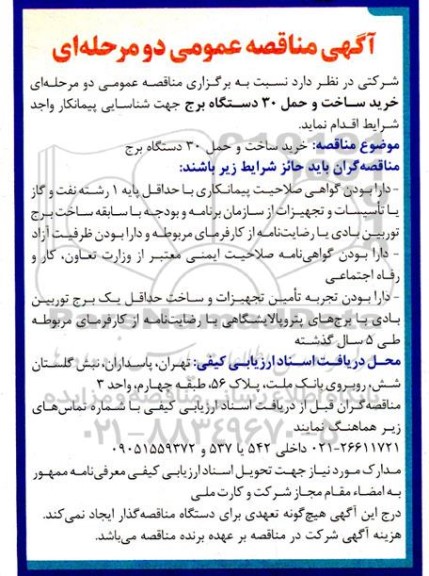 آگهی مناقصه عمومی دو مرحله‌ای
شرکتی در نظر دارد نسبت به برگزاری مناقصه عمومی دو مرحله‌ای
خرید ساخت و حمل ۳۰ دستگاه برج جهت شناسایی پیمانکار واجد
شرایط اقدام نماید.
موضوع مناقصه: خرید ساخت و حمل ۳۰ دستگاه برج
مناقصه‌گران باید حائز شرایط زیر باشند:
- دارا بودن گواهی صلاحیت پیمانکاری با حداقل پایه ۱ رشته نفت و گاز
یا تأسیسات و تجهیزات از سازمان برنامه و بودجه با سابقه ساخت برج
توربین بادی با رضایت‌نامه از کارفرمای مربوطه و دارا بودن ظرفیت آزاد
- دارا بودن گواهی‌نامه صلاحیت ایمنی معتبر از وزارت تعاون، کار و
رفاه اجتماعی
- دارا بودن تجربه تأمین تجهیزات و ساخت حداقل یک برج توربین
بادی یا برج‌های پتروپالایشگاهی با رضایت‌نامه از کارفرمای مربوطه
طی ۵ سال گذشته
محل دریافت اسناد ارزیابی کیفی: تهران، پاسداران، نبش گلستان
شش، روبروی بانک ملت، پلاک ۵۶، طبقه چهارم، واحد ۳
مناقصه‌گران قبل از دریافت اسناد ارزیابی کیفی با شماره تماس‌های
زیر هماهنگ نمایند
۰۲۱-۲۶۶۱۱۷۲۱ داخلی ۵۴۲ یا ۵۳۷ و ۰۹۰۵۱۵۵۹۳۷۲
مدارک مورد نیاز جهت تحویل اسناد ارزیابی کیفی معرفی‌نامه ممهور
به امضاء مقام مجاز شرکت و کارت ملی
درج این آگهی هیچ‌گونه تعهدی برای دستگاه مناقصه‌گذار ایجاد نمی‌کند.
هزینه آگهی شرکت در مناقصه بر عهده برنده مناقصه می‌باشد.
پایگاه اطلاع رسانی مناقصه و مزایده
۰۲۱-۸۸۳۴۹۶۷۰-۵